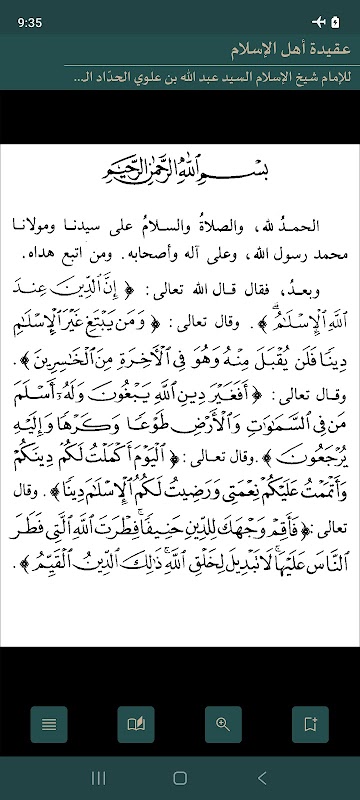 9:35
عقيدة أهل الإسلام
للإمام شيخ الإسلام السيد عبد الله بن علوي الحدّاد الـ...
بِسْمِ اللهِ الرَّحْمٰنِ الرَّحِيْمِ
الحمدُ لله، والصلاةُ والسلامُ على سيدنا ومولانا
محمد رسول الله، وعلى آله وأصحابه. ومن اتبع هداه.
وبعدُ، فقال قال الله تعالى: ﴿ إِنَّ ٱلدِّينَ عِندَ
ٱللَّهِ ٱلْإِسْلَٰمُ ۗ ﴾. وقال تعالى: ﴿ وَمَن يَبْتَغِ غَيْرَ ٱلْإِسْلَٰمِ
دِينًا فَلَن يُقْبَلَ مِنْهُ وَهُوَ فِي ٱلْآخِرَةِ مِنَ ٱلْخَٰسِرِينَ ﴾.
وقال تعالى: ﴿ أَفَغَيْرَ دِينِ ٱللَّهِ يَبْغُونَ وَلَهُۥٓ أَسْلَمَ
مَن فِي ٱلسَّمَٰوَٰتِ وَٱلْأَرْضِ طَوْعًا وَكَرْهًا وَإِلَيْهِ
يُرْجَعُونَ ﴾. وقال تعالى: ﴿ ٱلْيَوْمَ أَكْمَلْتُ لَكُمْ دِينَكُمْ
وَأَتْمَمْتُ عَلَيْكُمْ نِعْمَتِي وَرَضِيتُ لَكُمُ ٱلْإِسْلَٰمَ دِينًا ﴾. وقال
تعالى: ﴿ فَأَقِمْ وَجْهَكَ لِلدِّينِ حَنِيفًا ۚ فِطْرَتَ ٱللَّهِ ٱلَّتِي فَطَرَ
ٱلنَّاسَ عَلَيْهَا ۚ لَا تَبْدِيلَ لِخَلْقِ ٱللَّهِ ۚ ذَٰلِكَ ٱلدِّينُ ٱلْقَيِّمُ ﴾.